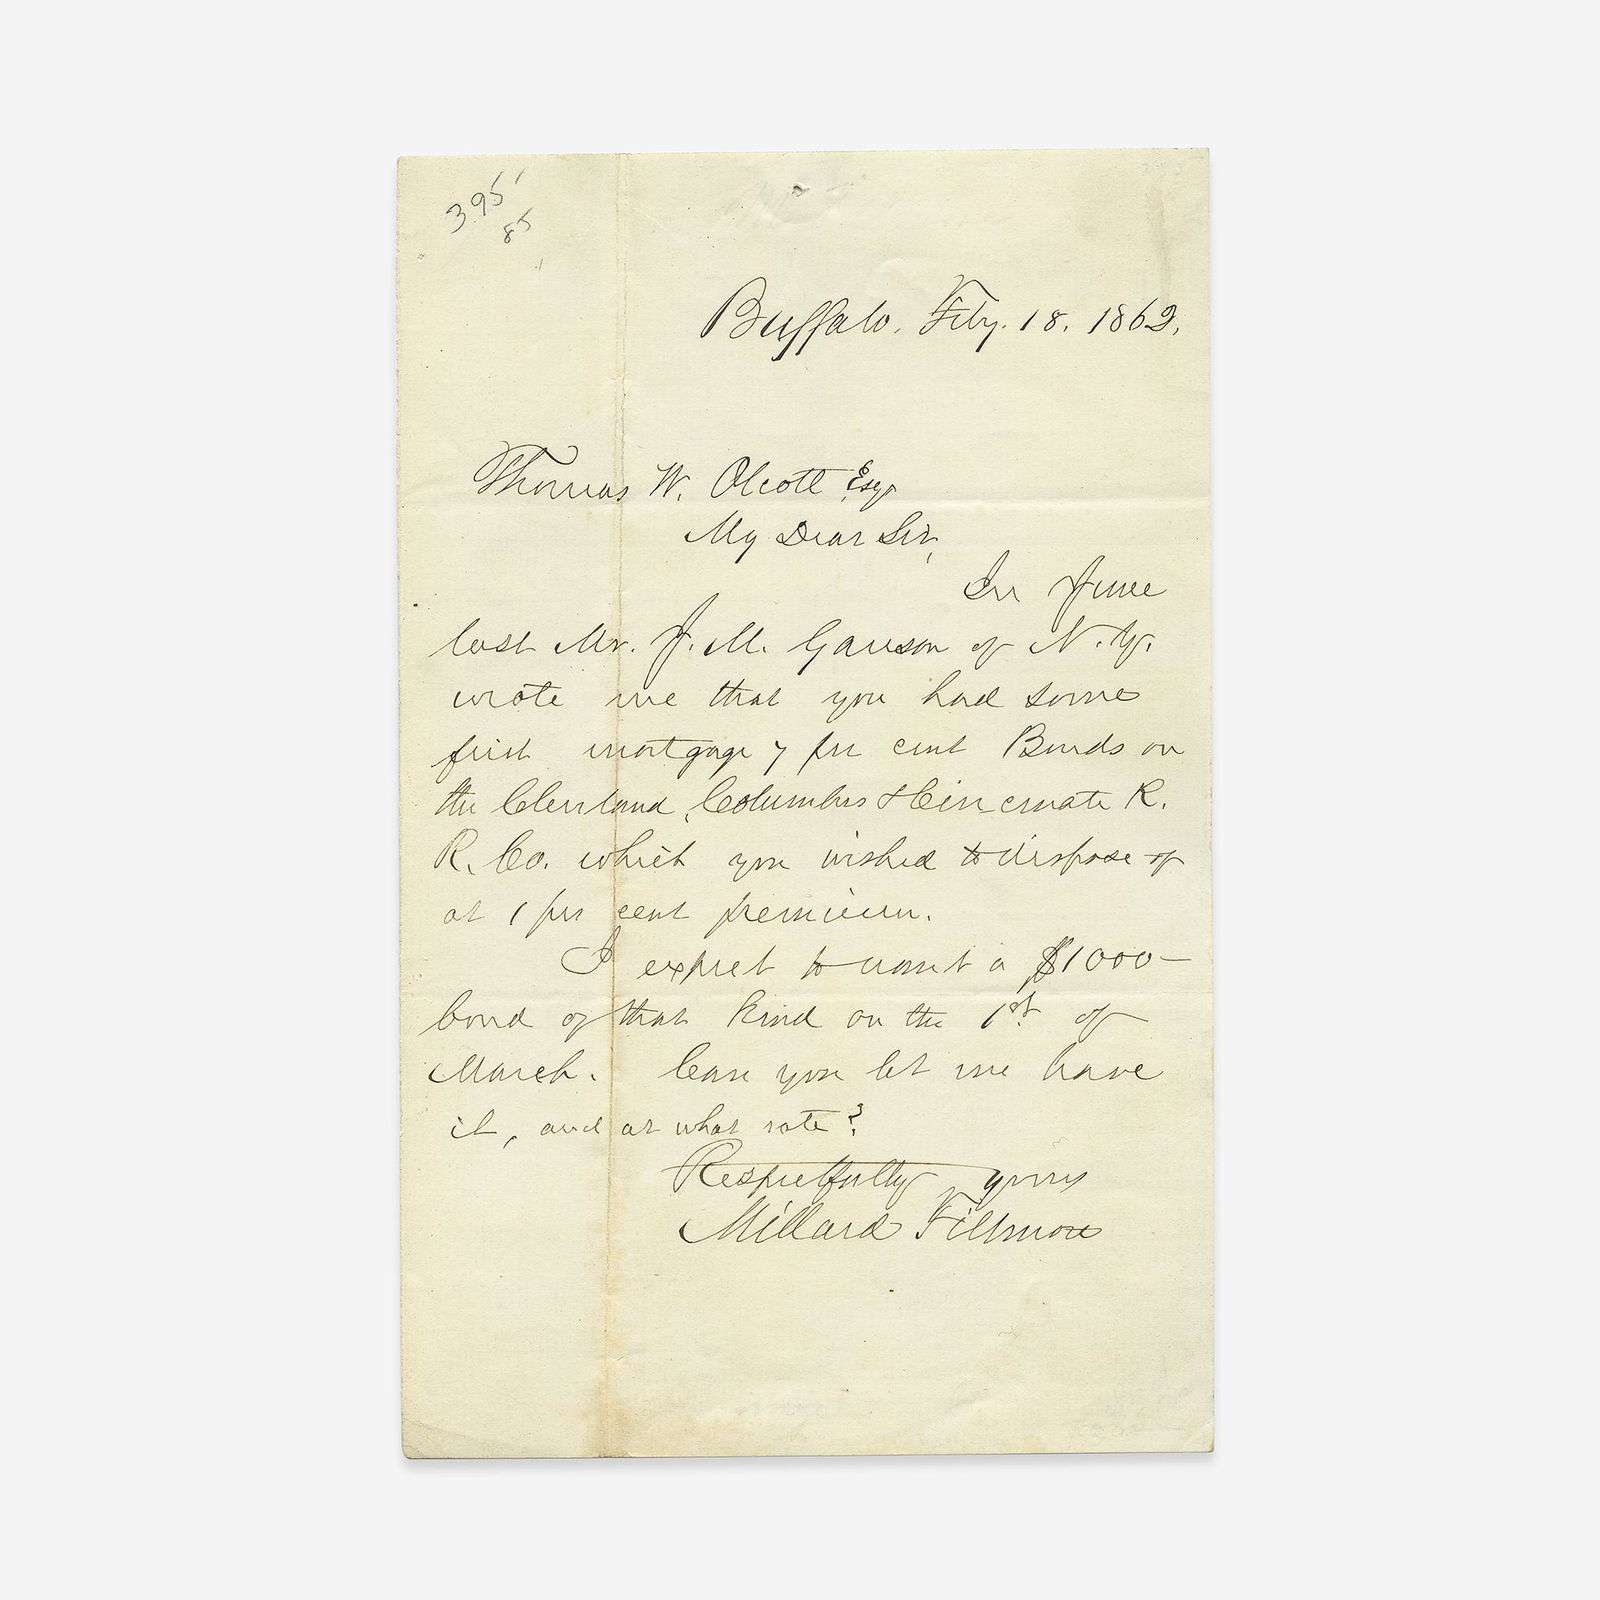 395
85
Buffalo, Feby. 18. 1862,
Thomas W. Olcott Esqr
My Dear Sir,
In June
last Mr. J. M. Ganson of N. Y.
wrote me that you had some
first mortgage 7 per cent Bonds on
the Cleveland, Columbus & Cincinnati R.
R. Co. which you wished to dispose of
at 1 per cent premium.
I expect to want a $1000
bond of that kind on the 1st. of
March. Can you let me have
it, and at what rate?
Respectfully yours
Millard Fillmore